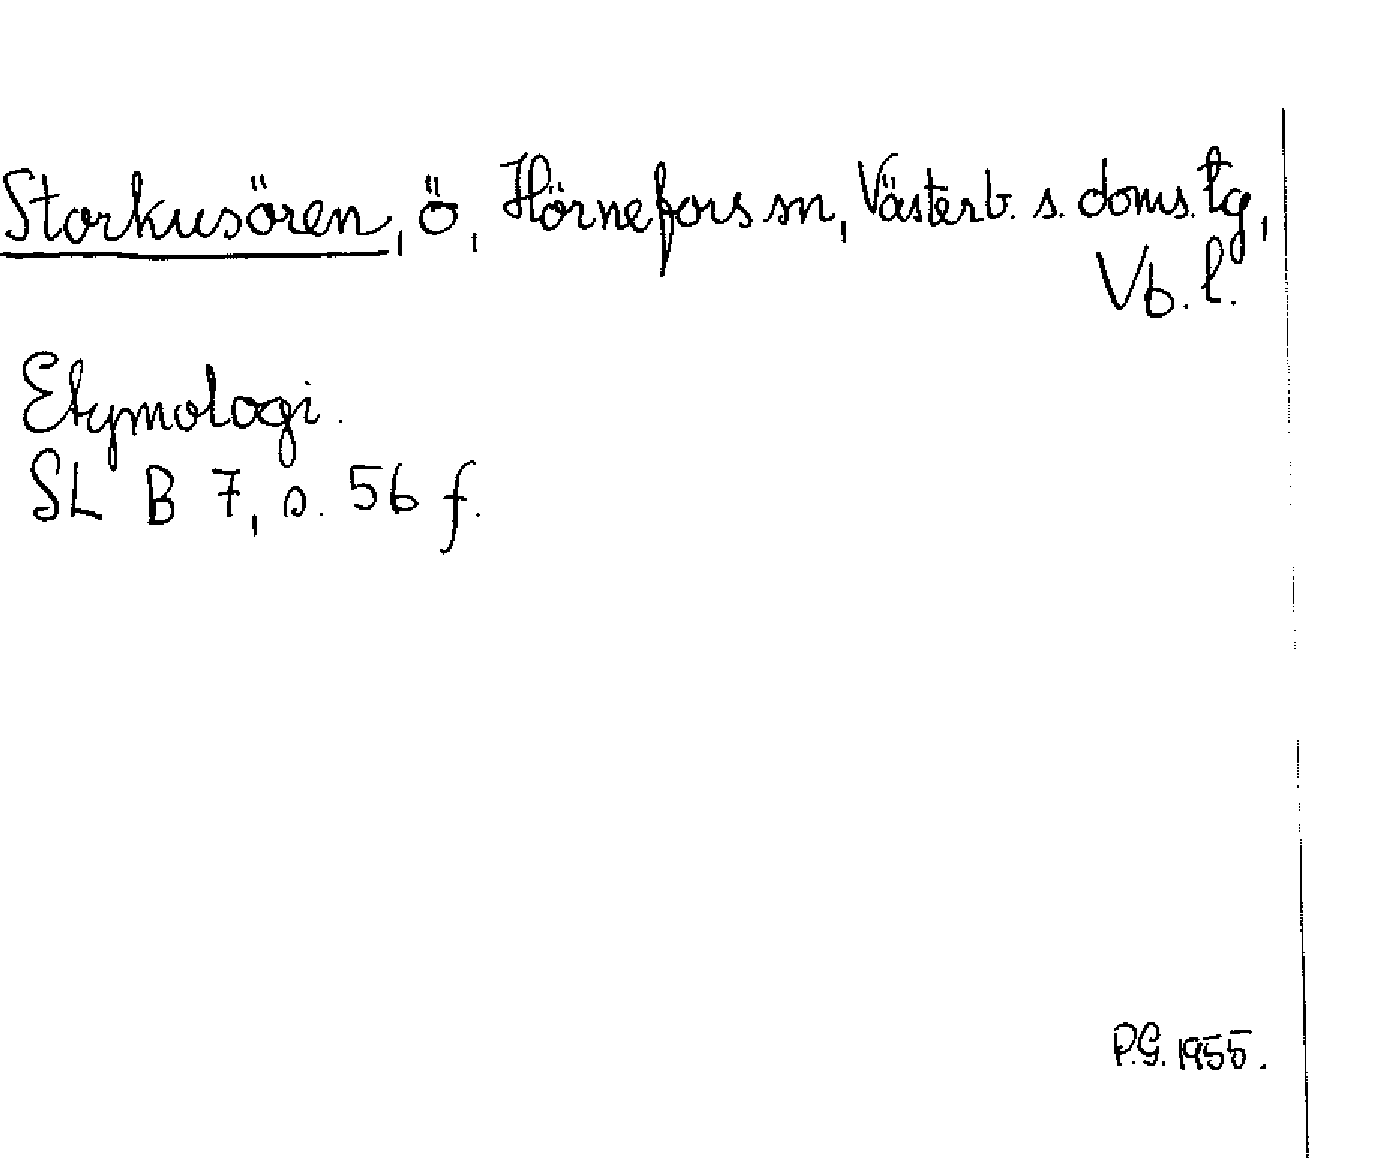 Storkusören, ö, Hörnefors sn, Västerb. s. doms. tg,
Vb. l.
Etymologi.
SL B 7, s. 56 f.
P.G. 1955.